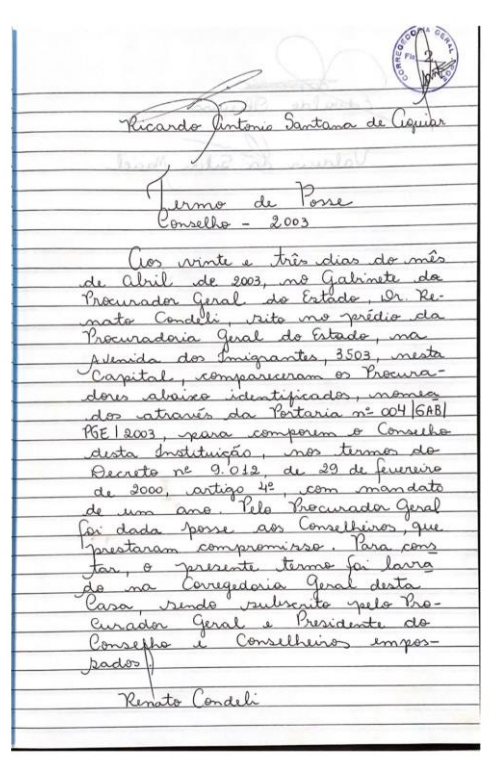 CORREGEDORIA GERAL
Fls. 2
Ricardo Antonio Santana de Aguiar
Termo de Posse
Conselho - 2003
Aos vinte e três dias do mês
de abril de 2003, no Gabinete do
Procurador Geral do Estado, Dr. Re-
nato Condeli, sito no prédio da
Procuradoria Geral do Estado, na
Avenida dos Imigrantes, 3.503, nesta
Capital, compareceram os Procura-
dores abaixo identificados, nomea
dos através da Portaria nº 004/GAB/
PGE/2003, para comporem o Conselho
desta Instituição, nos termos do
Decreto nº 9.012, de 29 de fevereiro
de 2000, artigo 4º, com mandato
de um ano. Pelo Procurador Geral
foi dada posse aos Conselheiros, que
prestaram compromisso. Para cons
tar, o presente termo foi lavra
do na Corregedoria Geral desta
Casa, sendo subscrito pelo Pro-
curador Geral e Presidente do
Conselho e Conselheiros empos-
sados.
Renato Condeli